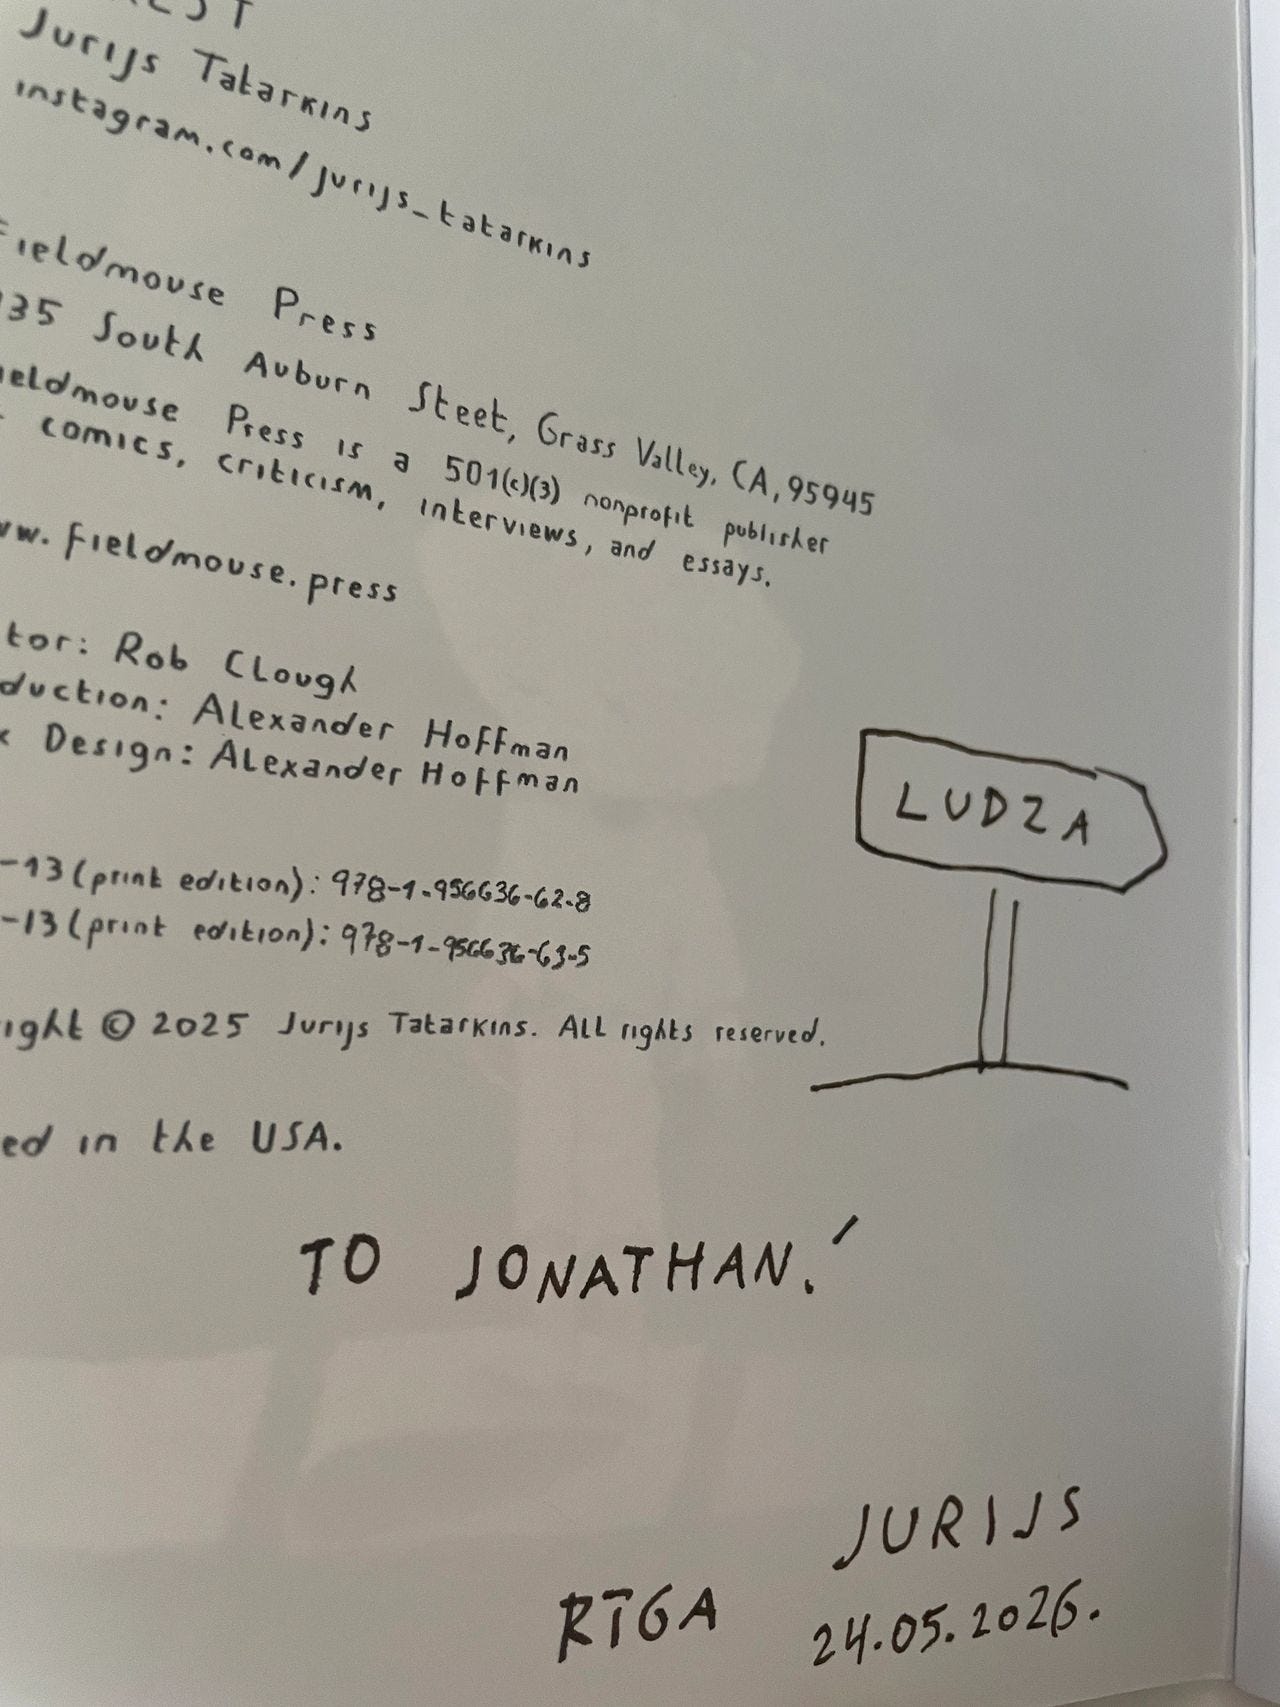 Jurijs Tatarkins
instagram.com/jurijs_tatarkins
Fieldmouse Press
135 South Auburn Steet, Grass Valley, CA, 95945
ieldmouse Press is a 501(c)(3) nonprofit publisher
comics, criticism, interviews, and essays.
ww.fieldmouse.press
tor: Rob Clough
duction: Alexander Hoffman
Design: Alexander Hoffman
LUDZA
-13 (print edition): 978-1-956636-62-8
-13 (print edition): 978-1-956636-63-5
ight © 2025 Jurijs Tatarkins. All rights reserved.
ed in the USA.
TO JONATHAN.
JURIJS
RĪGA 24.05.2026.